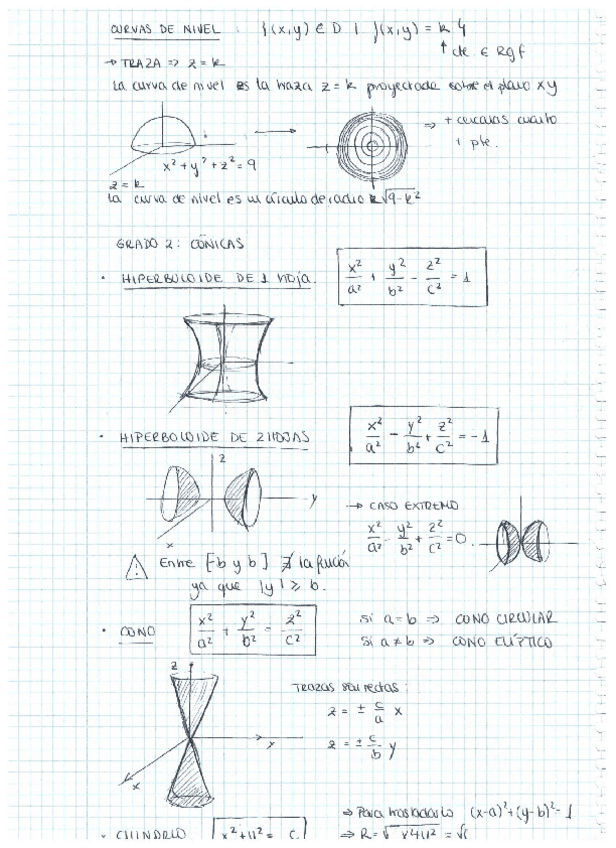 CURVAS DE NIVEL : {(x,y) ∈ D | f(x,y) = k}
↑ cte. ∈ Rgf
→ TRAZA => z = k
La curva de nivel es la traza z = k proyectada sobre el plano xy
x² + y² + z² = 9
⇒ + cercanas cuanto
+ pte.
z = k
la curva de nivel es un círculo de radio √9-k²
GRADO 2: CÓNICAS
• HIPERBOLOIDE DE 1 HOJA.
x²/a² + y²/b² - z²/c² = 1
• HIPERBOLOIDE DE 2 HOJAS
x²/a² - y²/b² + z²/c² = -1
z
y
x
→ CASO EXTREMO
x²/a² - y²/b² + z²/c² = 0.
! Entre [-b y b] ∄ la función
ya que |y| ≥ b.
• CONO
x²/a² + y²/b² = z²/c²
si a = b ⇒ CONO CIRCULAR
si a ≠ b ⇒ CONO ELÍPTICO
z
y
x
TRAZAS son rectas:
z = ± c/a x
z = ± c/b y
⇒ Para trasladarlo (x-a)² + (y-b)² = 1
• CILINDRO
x² + y² = c
⇒ R =